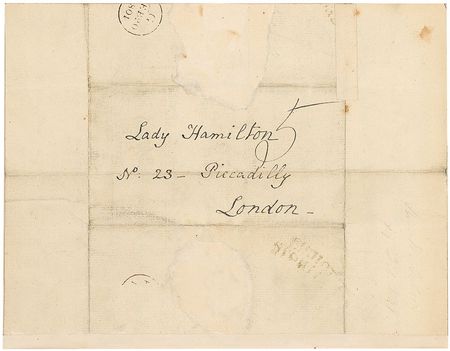 FE 20
801
Lady Hamilton 5
No: 23 - Piccadilly
London -